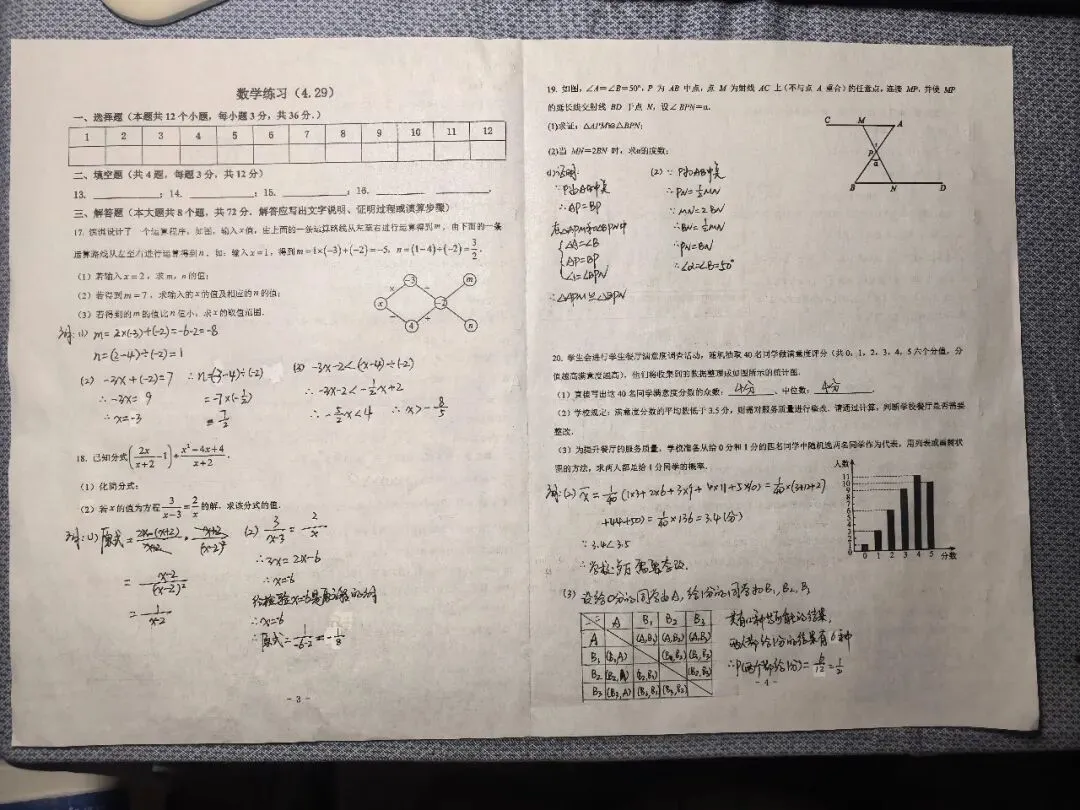 数学练习（4.29）
一、选择题（本题共12个小题，每小题3分，共36分.）
1 2 3 4 5 6 7 8 9 10 11 12
二、填空题（共4题，每题3分，共12分）
13. ；14. ；15. ；16.
三、解答题（本大题共8个题，共72分．解答应写出文字说明、证明过程或演算步骤）
17. 琪琪设计了一个运算程序，如图，输入x值，由上面的一条运算路线从左至右进行运算得到m，由下面的一条
运算路线从左至右进行运算得到n．如：输入x=1，得到m=1×(-3)+(-2)=-5，n=(1-4)÷(-2)=3/2．
（1）若输入x=2，求m，n的值；
（2）若得到m=7，求输入的x的值及相应的n的值；
（3）若得到的m的值比n值小，求x的取值范围．
x -3 4 -2 m n
解:(1) m=2×(-3)+(-2)=-6-2=-8
n=(2-4)÷(-2)=1
(2) -3x+(-2)=7 ∴n=(-3-4)÷(-2)
∴-3x=9 =-7×(-1/2)
∴x=-3 =7/2
(3) -3x-2<(x-4)÷(-2)
∴-3x-2<-1/2x+2
∴-5/2x<4 ∴x>-8/5
18. 已知分式(2x/(x+2)-1)÷(x²-4x+4)/(x+2)．
（1）化简分式；
（2）若x的值为方程3/(x-3)=2/x的解，求该分式的值．
解:(1) 原式=(2x-(x+2))/(x+2)·(x+2)/(x-2)²
=(x-2)/(x-2)²
=1/(x-2)
(2) 3/(x-3)=2/x
∴3x=2x-6
∴x=-6
经检验x=-6是原方程的
∴x=-6
∴原式=1/(-6-2)=-1/8
- 3 -
19. 如图，∠A=∠B=50°，P为AB中点，点M为射线AC上（不与点A重合）的任意点，连接MP，并使MP
的延长线交射线BD于点N，设∠BPN=α.
(1)求证：△APM≌△BPN；
(2)当MN=2BN时，求α的度数；
C M A
P α
B N D
(1)证明:
∵P为AB中点
∴AP=BP
在△APM和△BPN中
∠A=∠B
AP=BP
∠1=∠BPN
∴△APM≌△BPN
(2) ∵P为AB中点
∴PN=1/2MN
∵MN=2BN
∴BN=1/2MN
∴PN=BN
∴∠α=∠B=50°
20. 学生会进行学生餐厅满意度调查活动，随机抽取40名同学做满意度评分（共0，1，2，3，4，5六个分值，分
值越高满意度越高）．他们将收集到的数据整理成如图所示的统计图．
（1）直接写出这40名同学满意度分数的众数：4分，中位数：4分．
（2）学校规定：满意度分数的平均数低于3.5分，则需对服务质量进行整改．请通过计算，判断学校餐厅是否需要
整改．
（3）为提升餐厅的服务质量，学校准备从给0分和1分的四名同学中随机选两名同学作为代表，用列表或画树状
图的方法，求两人都是给1分同学的概率．
人数
11
10
9
8
7
6
5
4
3
2
1
0 1 2 3 4 5 分数
解:(2) x̄=1/40(1×3+2×6+3×9+4×11+5×10)=1/40×(3+12+27
+44+50)=1/40×136=3.4(分)
∵3.4<3.5
∴学校餐厅需要整改.
(3) 设给0分的同学为A，给1分的同学为B₁,B₂,B₃
A B₁ B₂ B₃
A (A,B₁) (A,B₂) (A,B₃)
B₁ (B₁,A) (B₁,B₂) (B₁,B₃)
B₂ (B₂,A) (B₂,B₁) (B₂,B₃)
B₃ (B₃,A) (B₃,B₁) (B₃,B₂)
共有12种等可能的结果，
两个都给1分的结果有6种
∴P(两个都给1分)=6/12=1/2
- 4 -